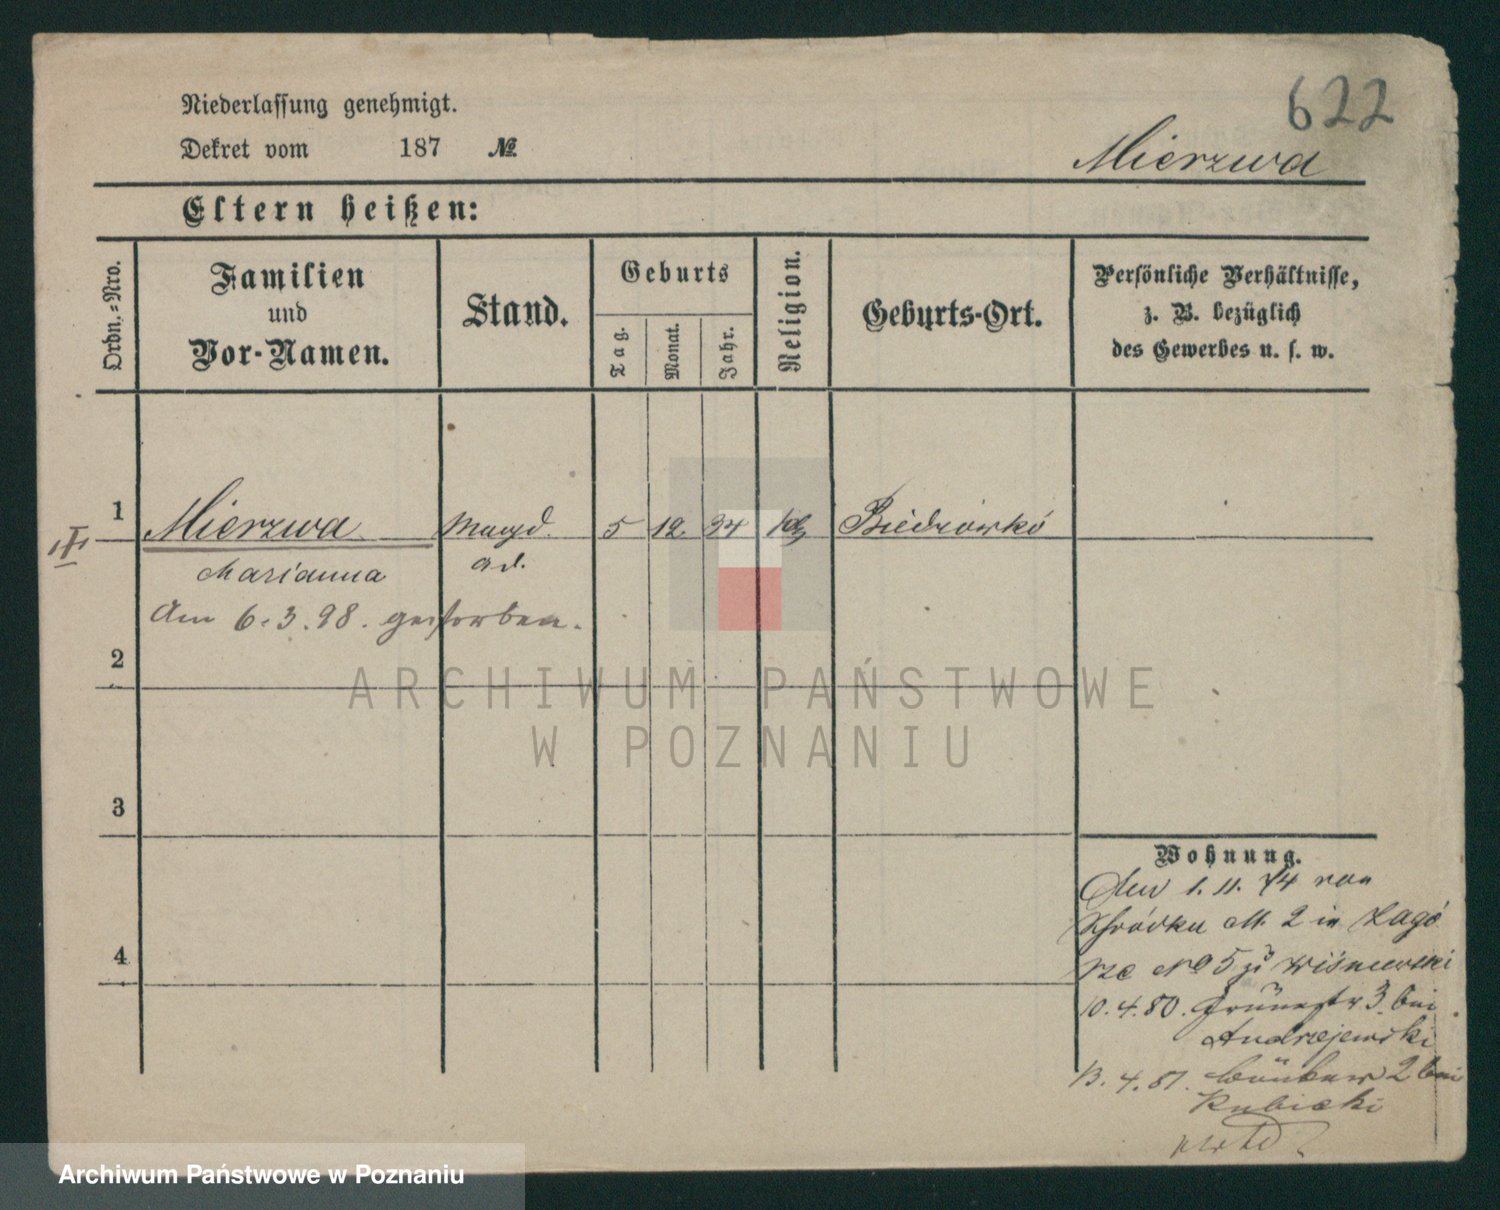 Niederlassung genehmigt.
622
Dekret vom 187 №
Mierzwa
Eltern heißen:
Ordn.-Nro.
Familien
und
Vor-Namen.
Stand.
Geburts
Tag.
Monat.
Jahr.
Religion.
Geburts-Ort.
Persönliche Verhältnisse,
z. B. bezüglich
des Gewerbes u. s. w.
1 Mierzwa Magd. 5 12 34 kth Biedrowko
III
Marianna
Am 6.3.98. gestorben.
2
ARCHIWUM PAŃSTWOWE
W POZNANIU
3
4
Wohnung.
Den 1. 11. 74 von
Schrodka N. 2 in Zagó
rze No 5 zu Wisniewski
10. 4. 80. Grünestr 3. bei
Andrzejewski
13. 4. 81. 2 bei
Kubicki
Archiwum Państwowe w Poznaniu